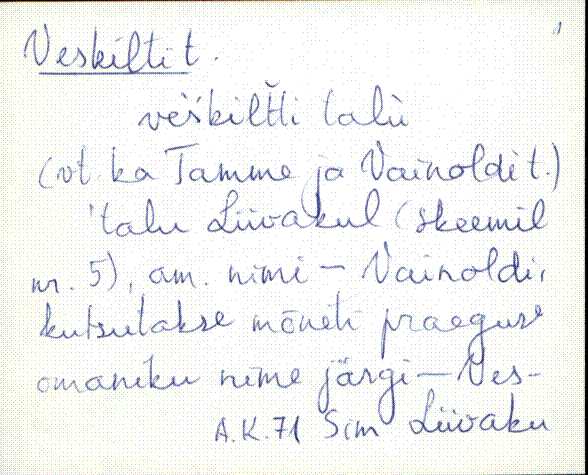 Veskilti t.
veškiltti talù
(vt. ka Tamme ja Vainoldi t.)
'talu Liivakul (skeemil
nr. 5), am. nimi – Vainoldi,
kutsutakse mõneti praeguse
omaniku nime järgi – Ves-
A.K. 71 Sim Liivaku